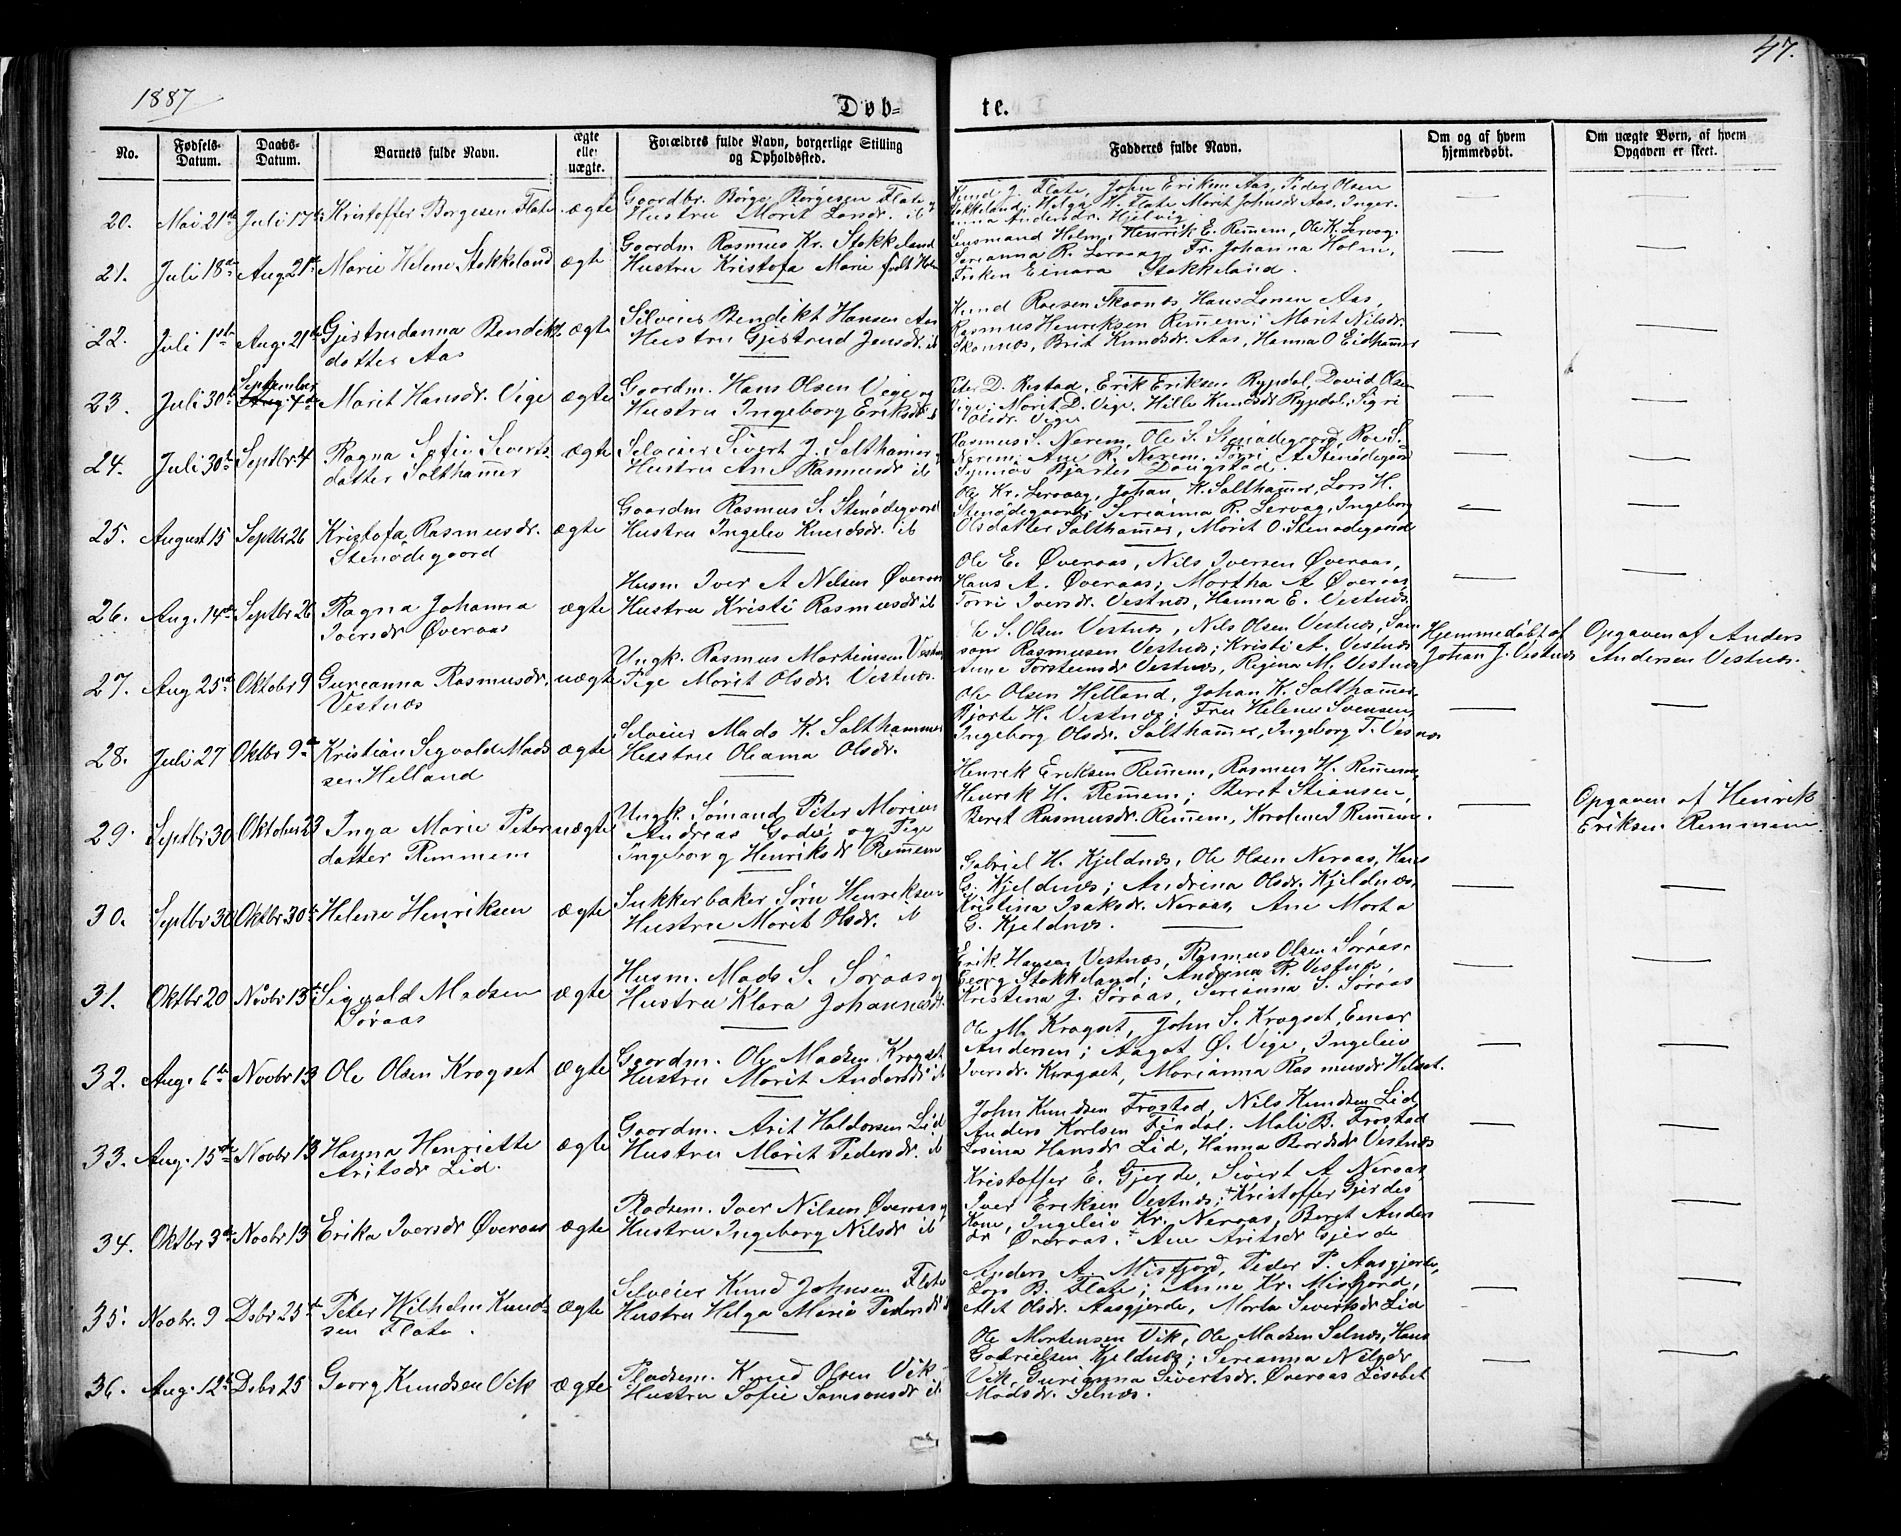 1887
47.
Døb=
te.
No.
Fødsels-
Datum.
Daabs-
Datum.
Barnets fulde Navn.
ægte
eller
uægte.
Forældres fulde Navn, borgerlige Stilling
og Opholdssted.
Fadderes fulde Navn.
Om og af hvem
hjemmedøbt.
Om uægte Børn, af hvem
Opgaven er skeet.
20. Mai 21de Juli 17 Kristoffer Børgesen Flate ægte
Gaardbr. Børge Børgesen Flate og
Hustru Marit Larsdr. ib
Knud J. Flate, John Eriksen Aas, Peder Olsen
Stokkeland; Helga M. Flate Marit Johnsdr Aas, Inger
Andersdr. Hjelvig
21. Juli 18de Aug. 21de Marie Helene Stokkeland ægte
Gaardm. Rasmus Kr. Stokkeland
Hustru Kristofa Marie født Holm
Lensmand Holm, Henrik E. Remem, Ole K. Lervag.
Serianna R. Lervaag Fr. Johanna Holm,
Frøken Einara Stokkeland.
22. Juli 1ste Aug. 21de Gjertrudanna Bendikts
datter Aas ægte
Selveier Bendikt Hansen Aas
Hustru Gjertrud Jensdr. ib
Knud Roesen Skaanes, Hans Larsen Aas,
Rasmus Henriksen Remem; Marit Nilsdr.
Skaanes, Brit Knudsdr. Aas, Hanna O Eidhamer
23. Juli 30te September 4de Marit Hansdr. Vige ægte
Gaardm. Hans Olsen Vige og
Hustru Ingeborg Eriksdr ib
Peter D. Restad, Erik Eriksen Rypdal, David Olsen
Vige; Marit D. Vige, Hille Knudsdr Rypdal, Sigri
Olsdr. Vige
24. Juli 30te Septbr 4 Ragna Sofie Siverts-
datter Salthamer ægte
Selveier Sivert J. Salthamer og
Hustru Ane Rasmusdr ib
Rasmus S. Nerem, Ole S. Stenødegaard, Roe S.
Nerem; Ane R. Nerem, Torri A Stenødegaard
Synnøv Bjartes Daugstad.
25. August 15 Septbr 26 Kristofa Rasmusdr.
Stenødegaard ægte
Gaardm Rasmus S. Stenødegaard
Hustru Ingelev Knudsdr. ib
Ole Kr. Lervaag, Johan K. Salthamer, Lars H.
Stenødegaard; Serianna R. Lervag, Ingeborg
Olsdatter Salthamer, Marit O. Stenødegaard
26. Aug. 14de Septbr 26 Ragna Johanna
Iversdr Øveraas ægte
Husm Iver A Nilsen Øveraas
Hustru Kristi Rasmusdr ib
Ole E. Øveraas, Nils Iversen Øveraas,
Hans A. Øveraas; Martha A Øveraas
Torri Iversdr. Vestnes, Hanna E. Vestnes.
27. Aug 25de Oktobr 9 Gurianna Rasmusdr.
Vestnæs uægte
Ungk. Rasmus Martinusen Vestnæs
Pige Marit Olsdr. Vestnæs.
S. Olsen Vestnæs, Nils Olsen Vestnæs, Sam
son Rasmusen Vestnæs; Kristi A. Vestnæs
Anne Torsteinsdr Vestnæs, Regina M. Vestnæs
Hjemmedøbt af
Johan J. Vestnæs
Opgaven af Anders
Andersen Vestnæs.
28. Juli 27 Oktbr 9de Kristian Sigvald Mads
sen Helland ægte
Selveier Mads K. Salthammer
Hustru Oleama Olsdr.
Ole Olsen Helland, Johan K. Salthamer,
Bjarte H. Vestnæs; Fru Helene Svensen,
Ingeborg Olsdr. Salthamer, Ingeborg T. Vestnæs
29. Septbr 30 Oktober 23 Inga Marie Peter
datter Remmem uægte
Ungk. Sømand Peter Marius
Andreas Gade og Pige
Ingeborg Henriksdr Remem
Henrik Eriksen Remem, Rasmus H. Remem,
Henrik H. Remem; Beret Stiansen,
Beret Rasmusdr. Remem, Karoline J Remem.
Opgaven af Henrik
Eriksen Remmem.
30. Septbr 30 Oktbr 30te Helene Henriksen ægte
Sukkerbaker Sørn Henriksen
Hustru Marit Olsdr. ib
Gabriel H. Kjeldnæs, Ole Olsen Neraas, Hans
G. Kjeldnæs; Andrina Olsdr. Kjeldnæs,
Kristina Isaksdr. Neraas, Ane Marta
G. Kjeldnæs.
31. Oktbr 20 Novbr 13de Sigvald Madsen
Søraas ægte
Husm. Mads S. Søraas og
Hustru Klara Johannesdr.
Erik Hansen Vestnæs, Rasmus Olsen Søraas,
Georg Stokkeland; Andrina R. Vestnæs,
Kristina J. Søraas, Serianna S. Søraas
32. Aug. 6te Novbr 13 Ole Olsen Kragset ægte
Gaardm. Ole Madsen Kragset
Hustru Marit Andersdr ib
Ole M. Kragset, John S. Kragset, Einar
Andersen; Aagot Ø. Vige, Ingeleiv
Iversdr. Kragset, Marianna Rasmusdr Helset.
33. Aug. 15de Novbr 13 Hanna Henriette
Aritsdr Lid. ægte
Gaardm. Arit Haldorsen Lid
Hustru Marit Pedersdr. ib
John Knudsen Frostad, Nils Knudsen Lid
Anders Karlsen Findal. Mali B. Frostad
Lasina Hansdr Lid, Hanna Bardsdr Vestnæs
34. Oktbr 3de Novbr 13 Erika Iversdr Øveraas ægte
Pladsem. Iver Nilsen Øveraas og
Hustru Ingeborg Nilsdr ib
Kristoffer E. Gjerde, Sivert A Neraas,
Iver Eriksen Vestnæs; Kristoffer Gjerdes
Kone, Ingeleiv Kr. Neraas, Beret Anders
dr Øveraas. Ane Aritsdr Gjerde
35. Novbr. 9 Dsbr 25de Peter Wilhelm Knud-
sen Flate. ægte
Selveier Knud Johnsen Flate
Hustru Helga Marie Pedersdr ib
Anders A. Misfjord, Peder P. Aasgjerde,
Lars B. Flate; Anne Kr. Misfjord,
Alet Olsdr. Aasgjerde, Marta Sivertsdr Lid
36. Aug. 12te Dsbr 25 Georg Knudsen Vik ægte
Pladsem. Knud Olsen Vik.
Hustru Sofie Samsonsdr ib
Ole Mortensen Vik, Ole Madsen Selnæs, Hans
Gabrielsen Kjeldnæs; Serianna Nilsdr
Vik, Gurianna Sivertsdr. Øveraas Lisabet
Madsdr. Selnæs.